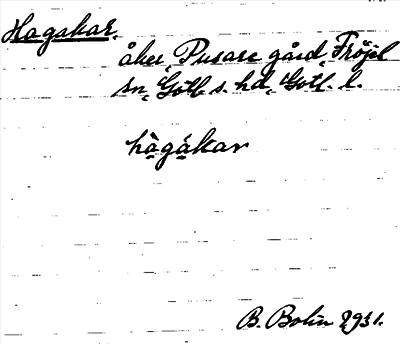 Hagakar.
åker, Pusarc gård, Fröjel
sn, Gotl. s. hd, Gotl. l.
hàgákar
B. Bolin 1931.